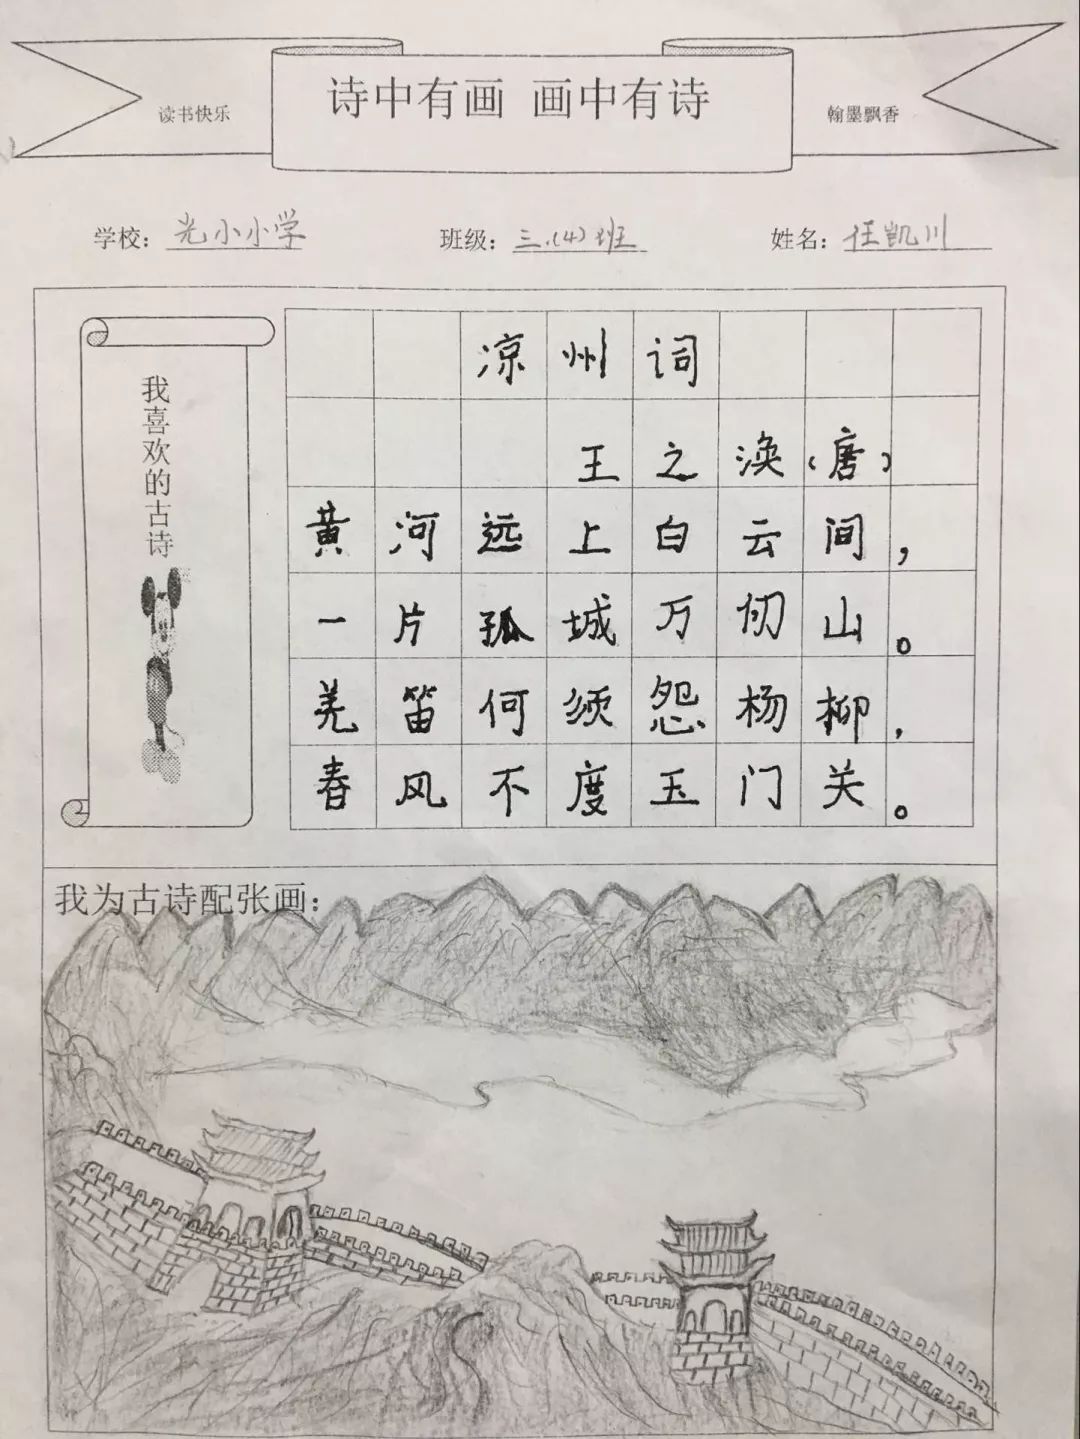 诗中有画 画中有诗
读书快乐
翰墨飘香
学校：光小小学 班级：三.(4)班 姓名：任凯川
我喜欢的古诗
凉州词
王之涣(唐)
黄河远上白云间，
一片孤城万仞山。
羌笛何须怨杨柳，
春风不度玉门关。
我为古诗配张画：